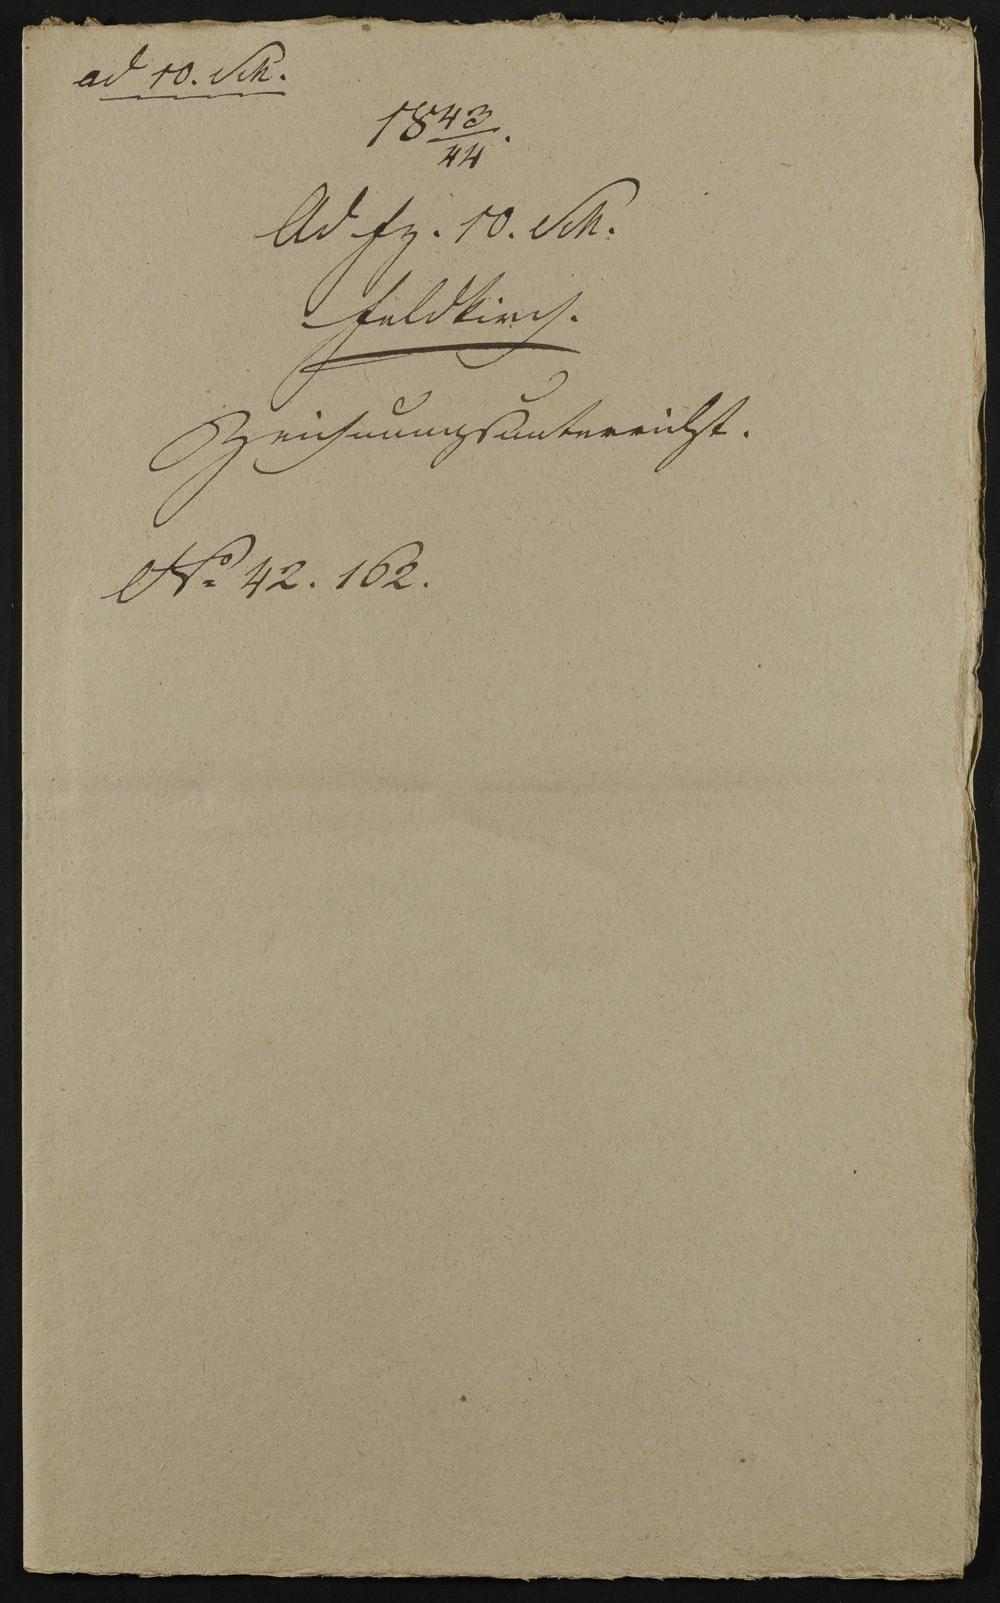 ad 10. Sch.
18 43/44.
Ad fz. 10. Sch.
Feldkirch.
Zeichnungsunterricht.
No. 42. 162.